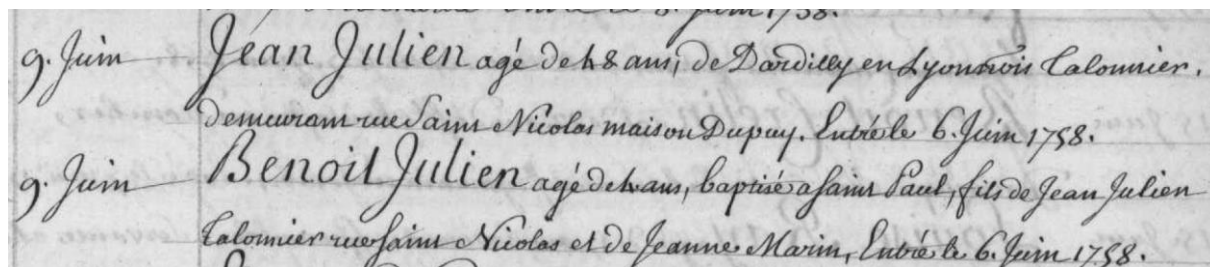 9. Juin Jean Julien agé de 48 ans, de Dardilly en Lyonnois Talonnier,
demeurant rue Saint Nicolas maison Dupuy. Entré le 6. Juin 1758.
9. Juin Benoit Julien agé de 4 ans, baptisé a saint Paul, fils de Jean Julien
Talonnier rue saint Nicolas et de Jeanne Marin, Entré le 6. Juin 1758.